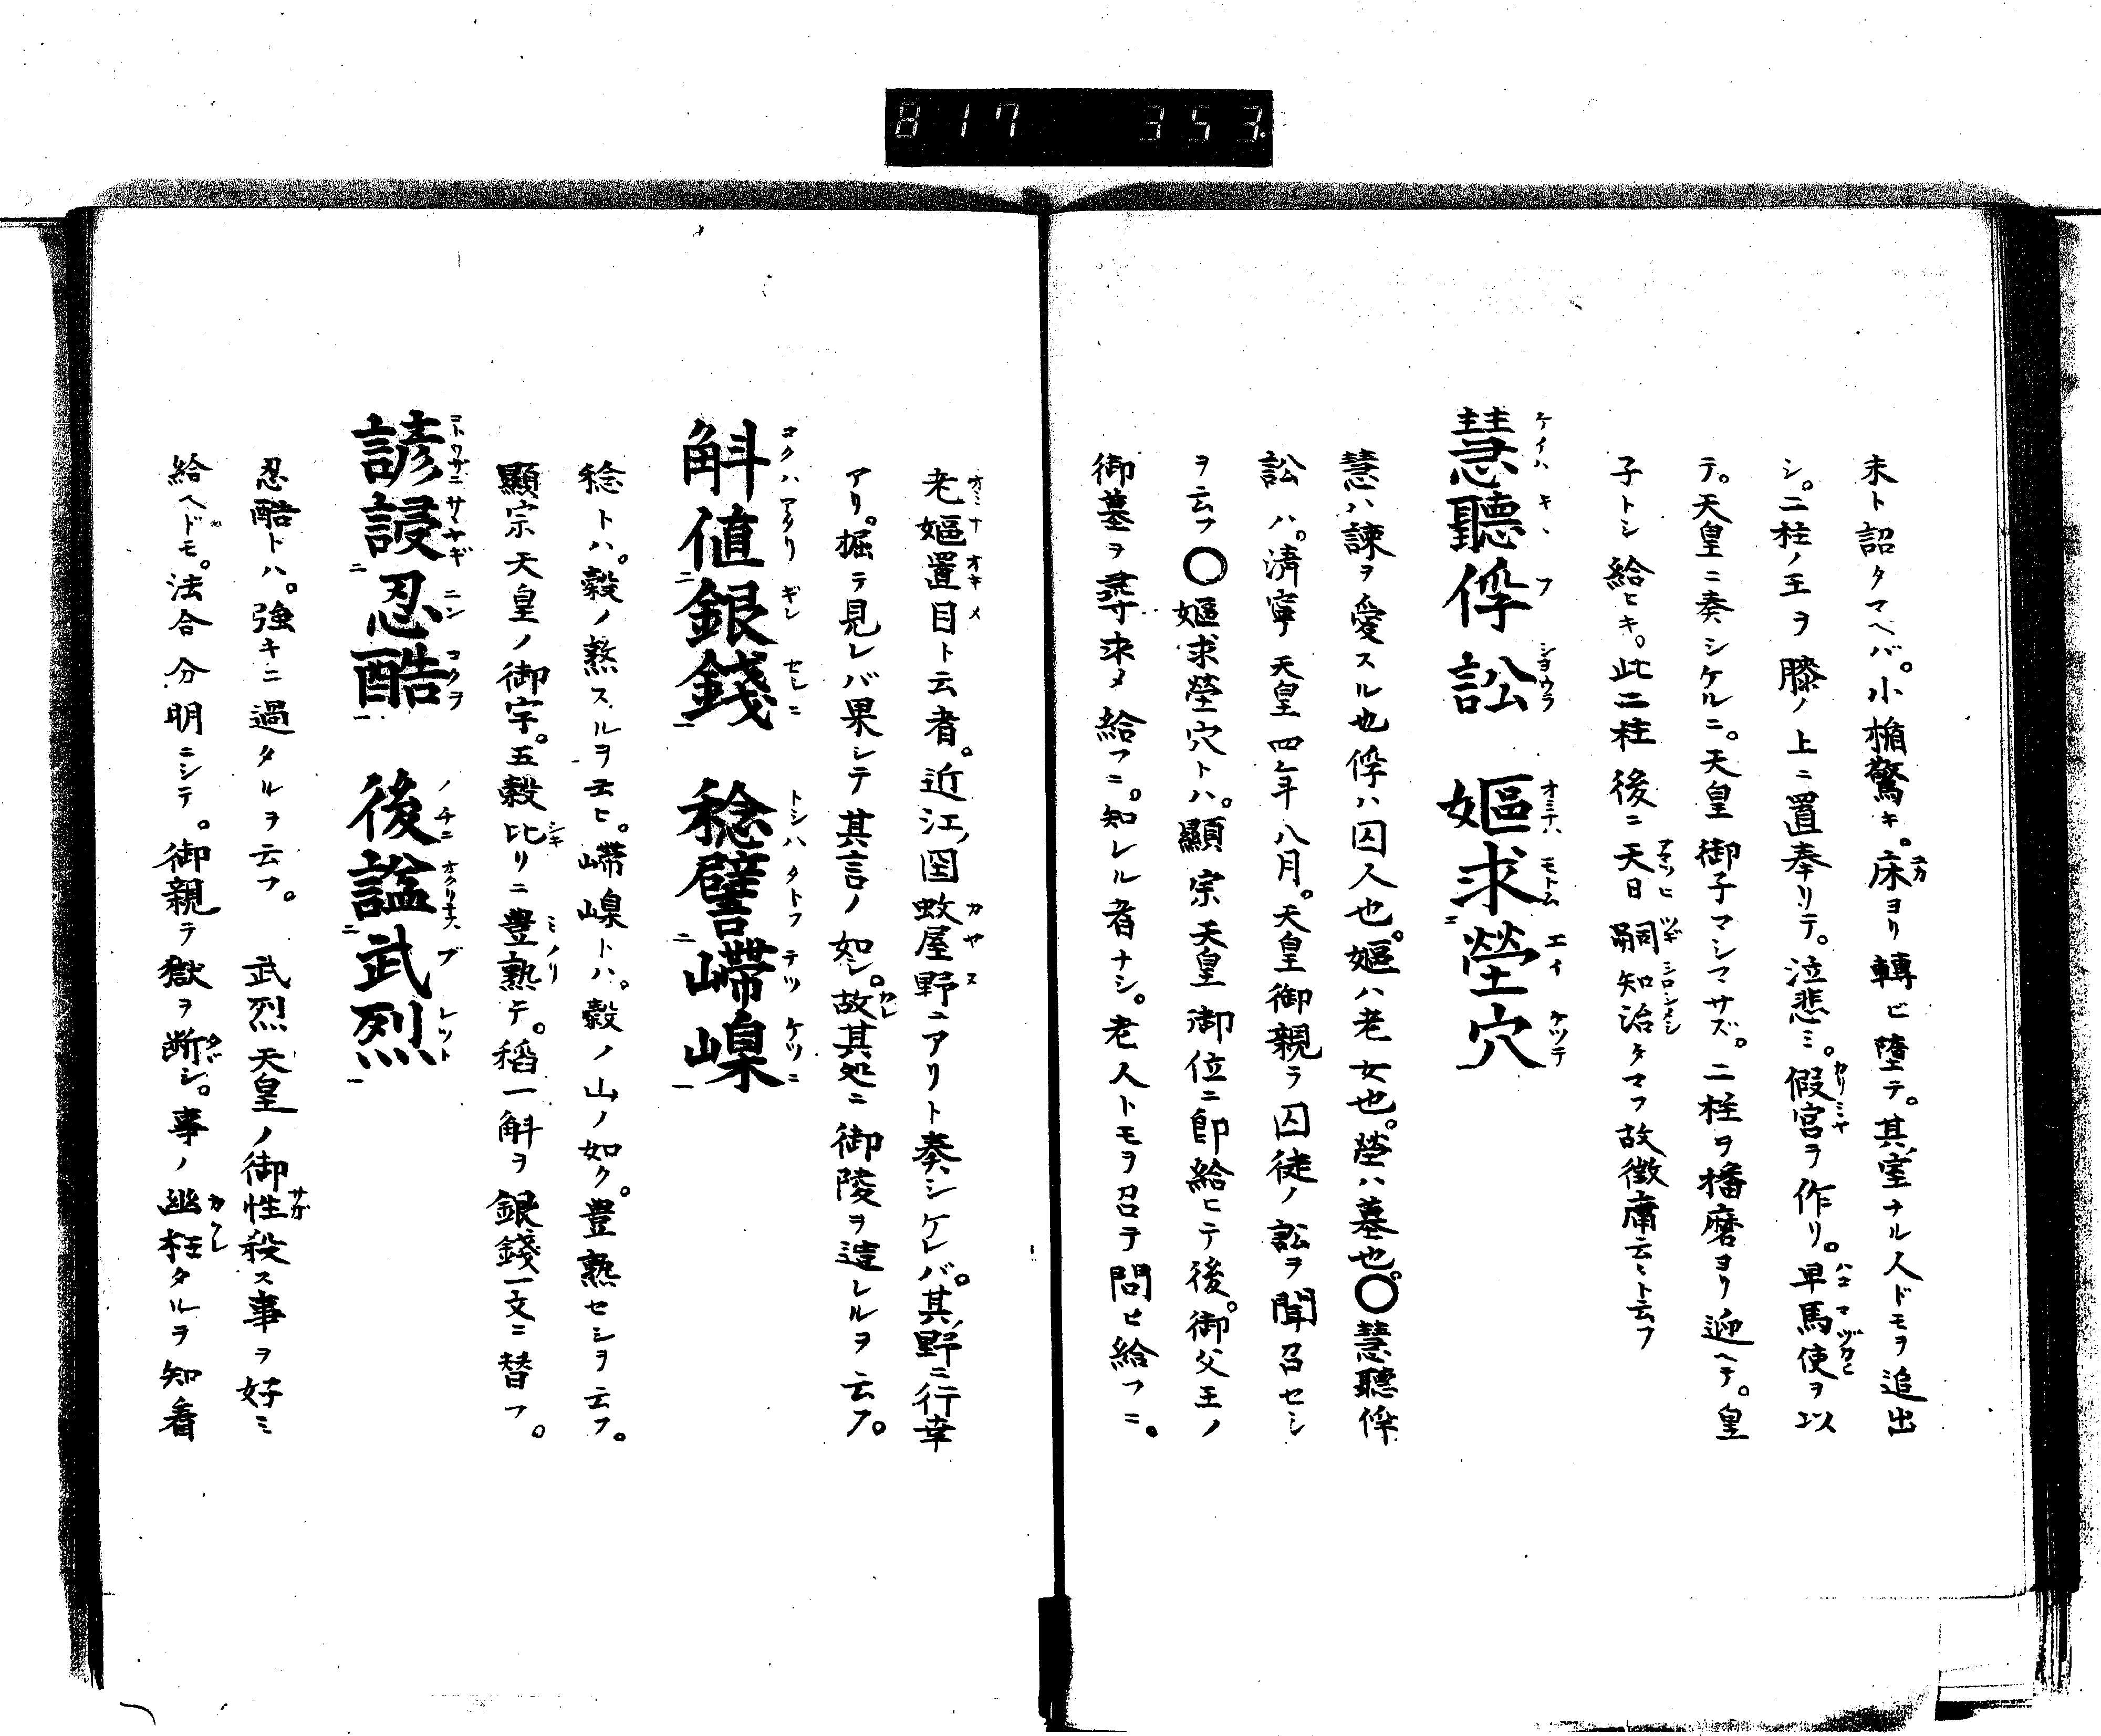 817 353.
末ト詔タマヘバ。小楯驚キ。床ヨリ轉ビ墮テ。其室ナル人ドモヲ追出
シ。二柱ノ王ヲ膝ノ上ニ置奉リテ。泣悲ミ。假宮ヲ作リ。早馬使ヲ以
テ。天皇ニ奏シケルニ。天皇御子マシマサズ。二柱ヲ播磨ヨリ迎ヘテ。皇
子トシ給ヒキ。此二柱後ニ天日嗣知治タマフ故徴庸云々ト云フ
慧聽俘訟 嫗求塋穴
慧ハ諫ヲ愛スル也俘ハ囚人也。嫗ハ老女也。塋ハ墓也。〇慧聽俘
訟ハ。淸寧天皇四年八月。天皇御親ラ囚徒ノ訟ヲ聞召セシ
ヲ云フ〇嫗求塋穴トハ。顯宗天皇御位ニ卽給ヒテ後。御父王ノ
御墓ヲ尋求メ給フニ。知レル者ナシ。老人トモヲ召テ問ヒ給フニ。
老嫗置目ト云者。近江ノ国蚊屋野ニアリト奏シケレバ。其野ニ行幸
アリ。掘テ見レバ果シテ其言ノ如シ。故其処ニ御陵ヲ造レルヲ云フ。
斛値銀錢 稔譬嵽嵲
稔トハ。穀ノ熬スルヲ云ヒ。嵽嵲トハ。穀ノ山ノ如ク。豊熟セシヲ云フ。
顯宗天皇ノ御宇。五穀比リニ豊熟テ。稻一斛ヲ銀錢一文ニ替フ。
諺謖忍酷 後諡武烈
忍酷トハ。強キニ過タルヲ云フ。 武烈天皇ノ御性殺ス事ヲ好ミ
給ヘドモ。法合分明ニシテ。御親ラ獄ヲ断シ。事ノ幽枉タルヲ知看